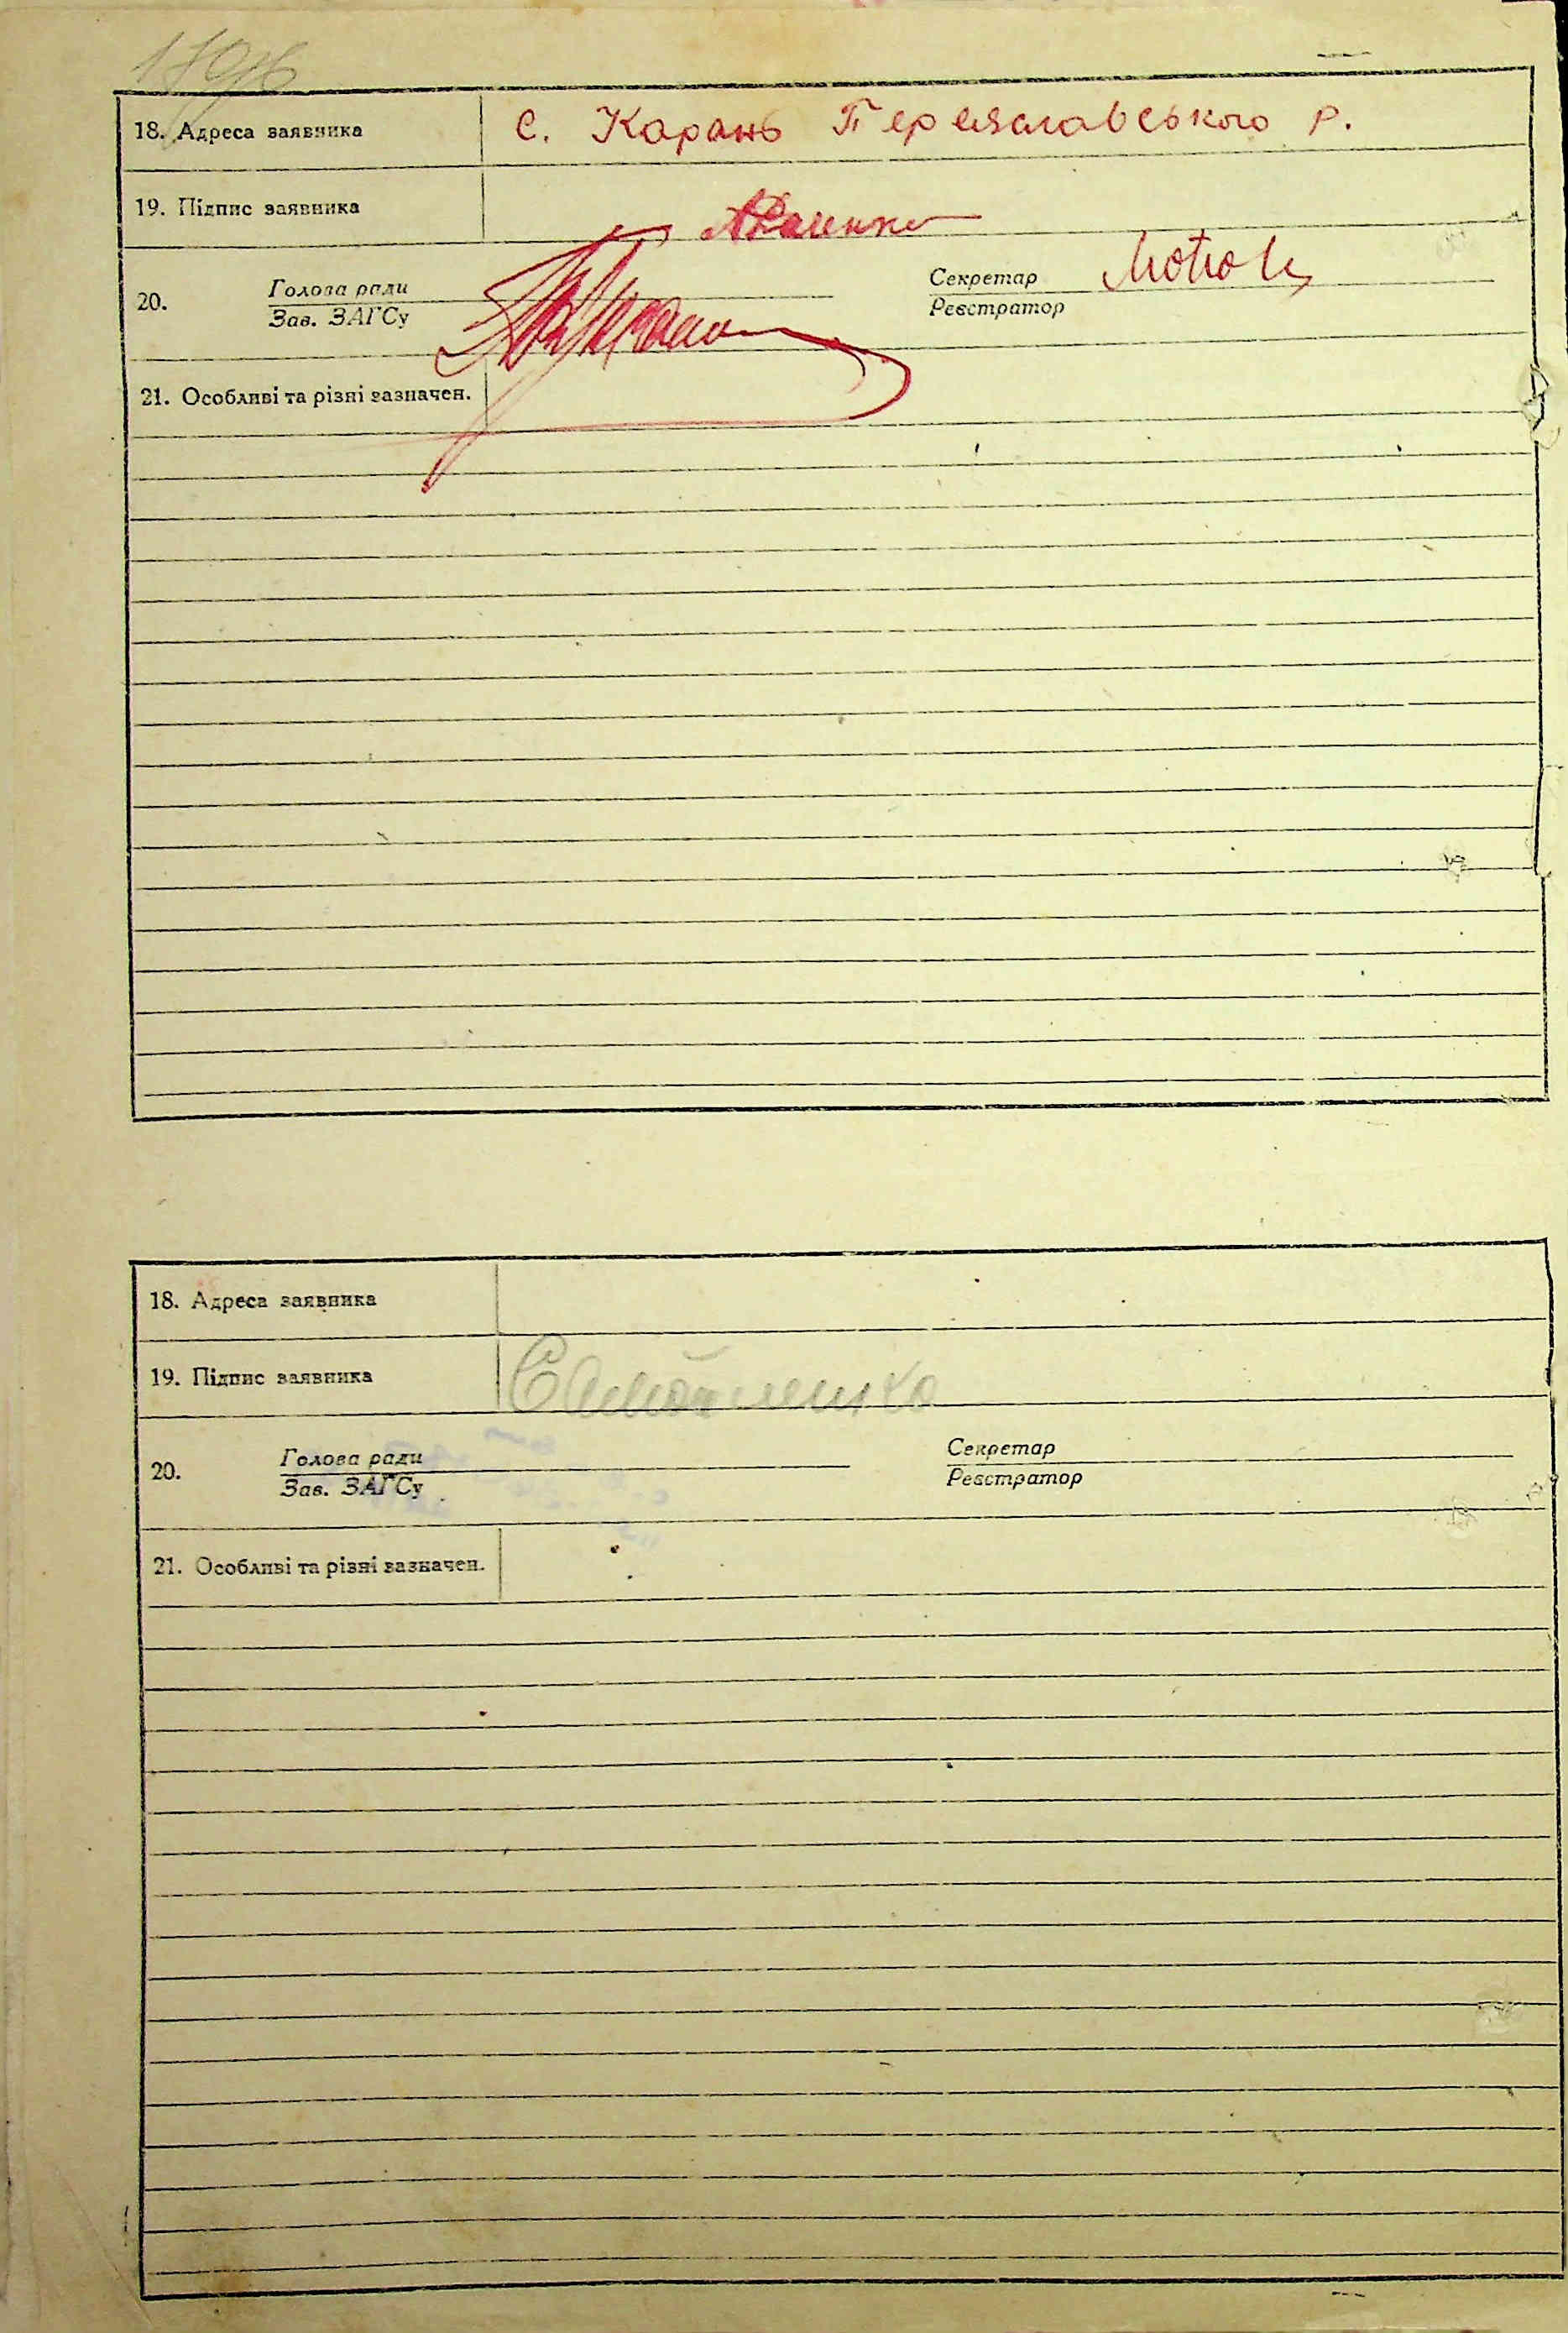 18. Адреса заявника С. Карань Переяславського р.
19. Підпис заявника
20. Голова ради Секретар
Зав. ЗАГСу Реєстратор
21. Особливі та різні зазначен.
18. Адреса заявника
19. Підпис заявника
20. Голова ради Секретар
Зав. ЗАГСу Реєстратор
21. Особливі та різні зазначен.